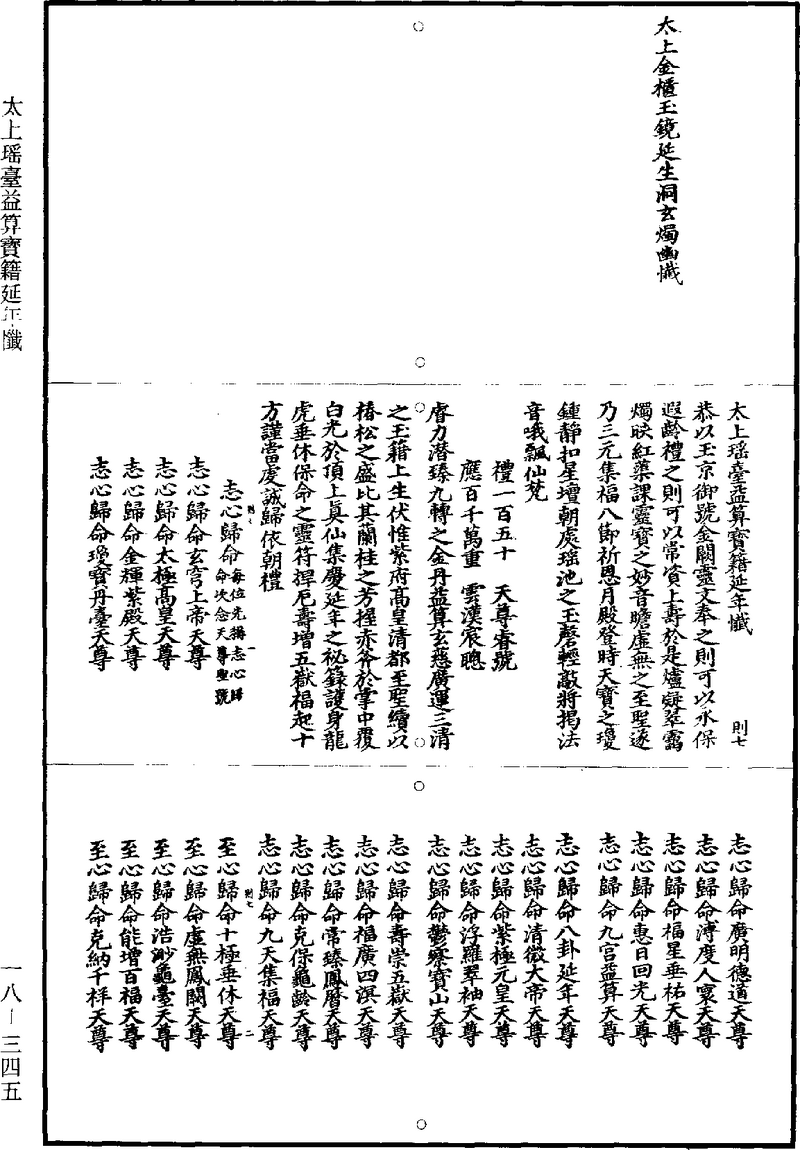 太上金櫃玉鏡延生洞玄燭幽懺
太上瑤臺益算寶籍延年懺
則七
恭以玉京御號金闕靈文奉之則可以永保
遐齡禮之則可以常資上壽於是爐凝翠靄
燭映紅蕖課靈寶之妙音瞻虛無之至聖逐
乃三元集福八節祈恩月殿登時天寶之瓊
鍾靜扣星壇朝處瑤池之玉磬輕敲將揭法
音哦飄仙梵
禮一百五十 天尊睿號
應百千萬重 雲漢宸聰
膚力潜臻九轉之金丹益算玄慈廣運三清
之玉籍上生伏惟紫府高皇清都至聖續以
椿松之盛比其蘭桂之芳握赤斧於掌中覆
白光於頂上真仙集慶延年之祕籙護身龍
虎垂休保命之靈符捍厄壽增五嶽福起十
方謹當虔誠歸依朝禮
志心歸命每位先稱志心歸
命次念天尊聖號
則七
一
志心歸命玄穹上帝天尊
志心歸命太極高皇天尊
志心歸命金輝紫殿天尊
志心歸命瓊寶丹臺天尊
志心歸命廣明德道天尊
志心歸命溥度人寰天尊
志心歸命福星垂祐天尊
志心歸命惠日回光天尊
志心歸命九宮益算天尊
志心歸命八卦延年天尊
志心歸命清微大帝天尊
志心歸命紫極元皇天尊
志心歸命浮羅翠岫天尊
志心歸命鬱察寶山天尊
志心歸命壽崇五嶽天尊
志心歸命福廣四溟天尊
志心歸命常臻鳳曆天尊
志心歸命克保龜齡天尊
志心歸命九天集福天尊
則七
二
至心歸命十極垂休天尊
至心歸命虛無鳳闕天尊
至心歸命浩渺龜臺天尊
至心歸命能增百福天尊
至心歸命克納千祥天尊
太上瑤臺益算寶籍延年懺
一八－三四五